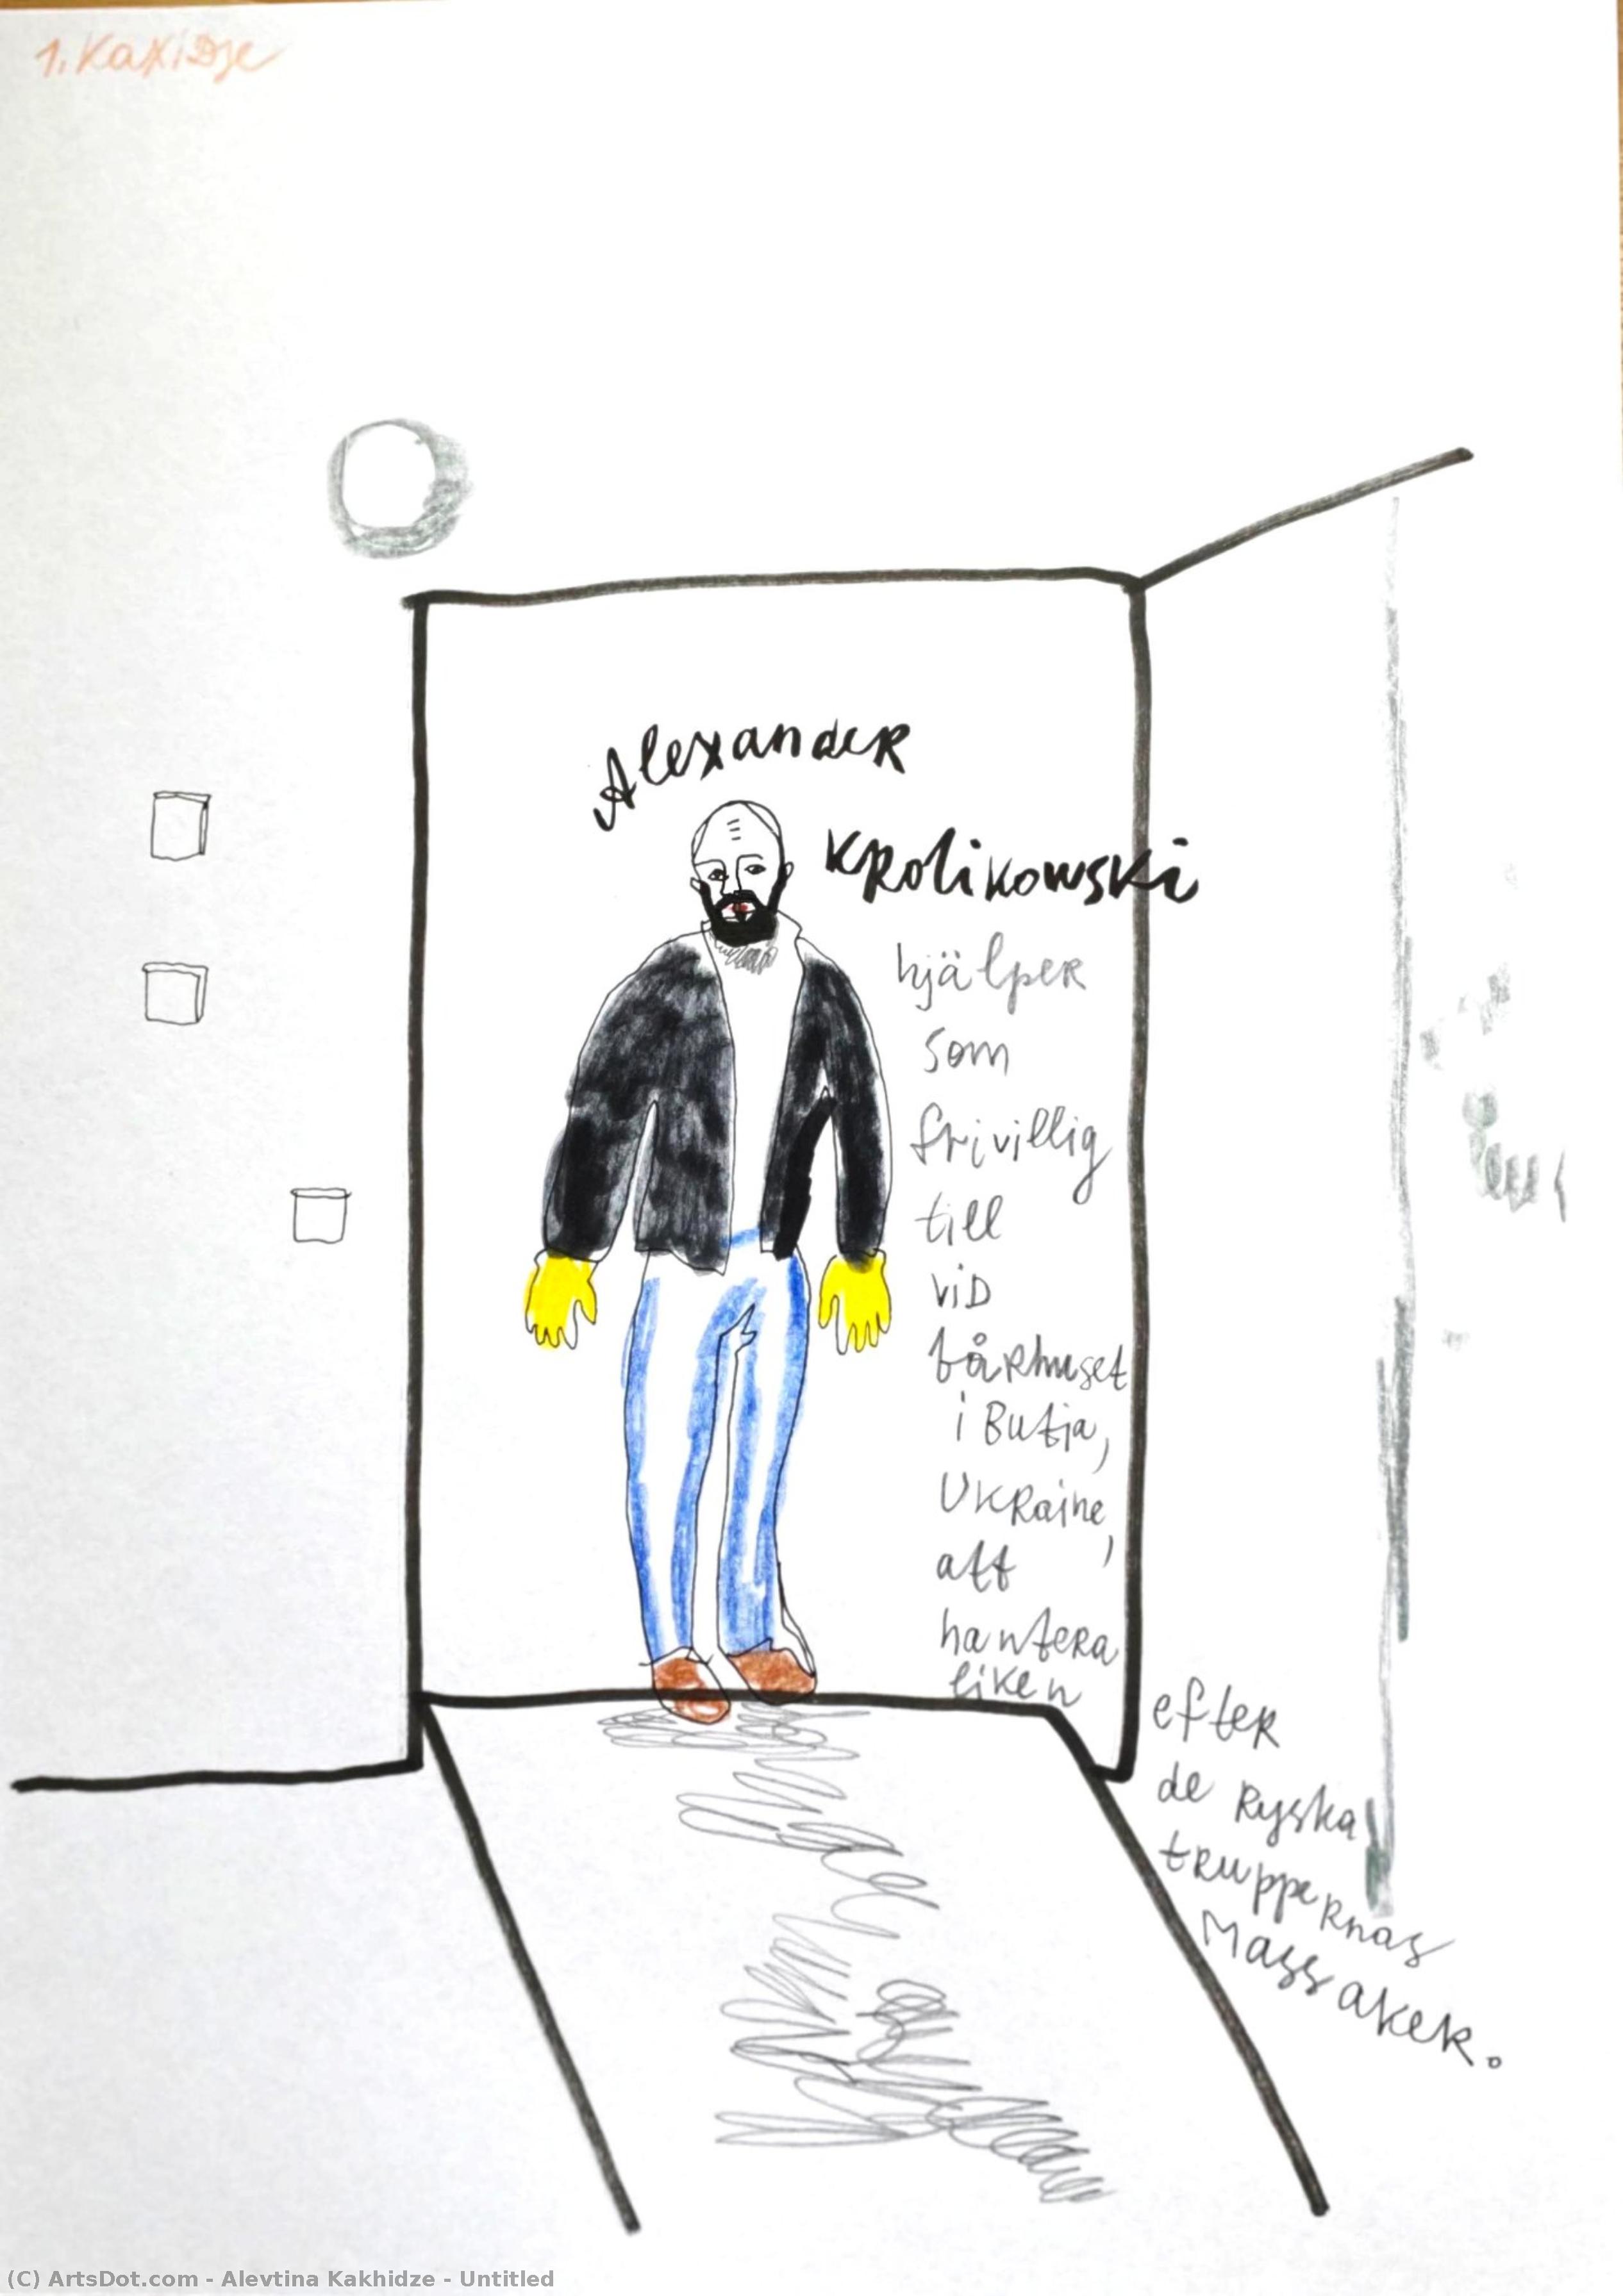 1. Kaxidze
Alexander
Krolikowski
hjälper
som
frivillig
till
vid
bårhuset
i Butja,
Ukraine,
att
hantera
liken
efter
de ryska
truppernas
Massaker.
(C) ArtsDot.com - Alevtina Kakhidze - Untitled